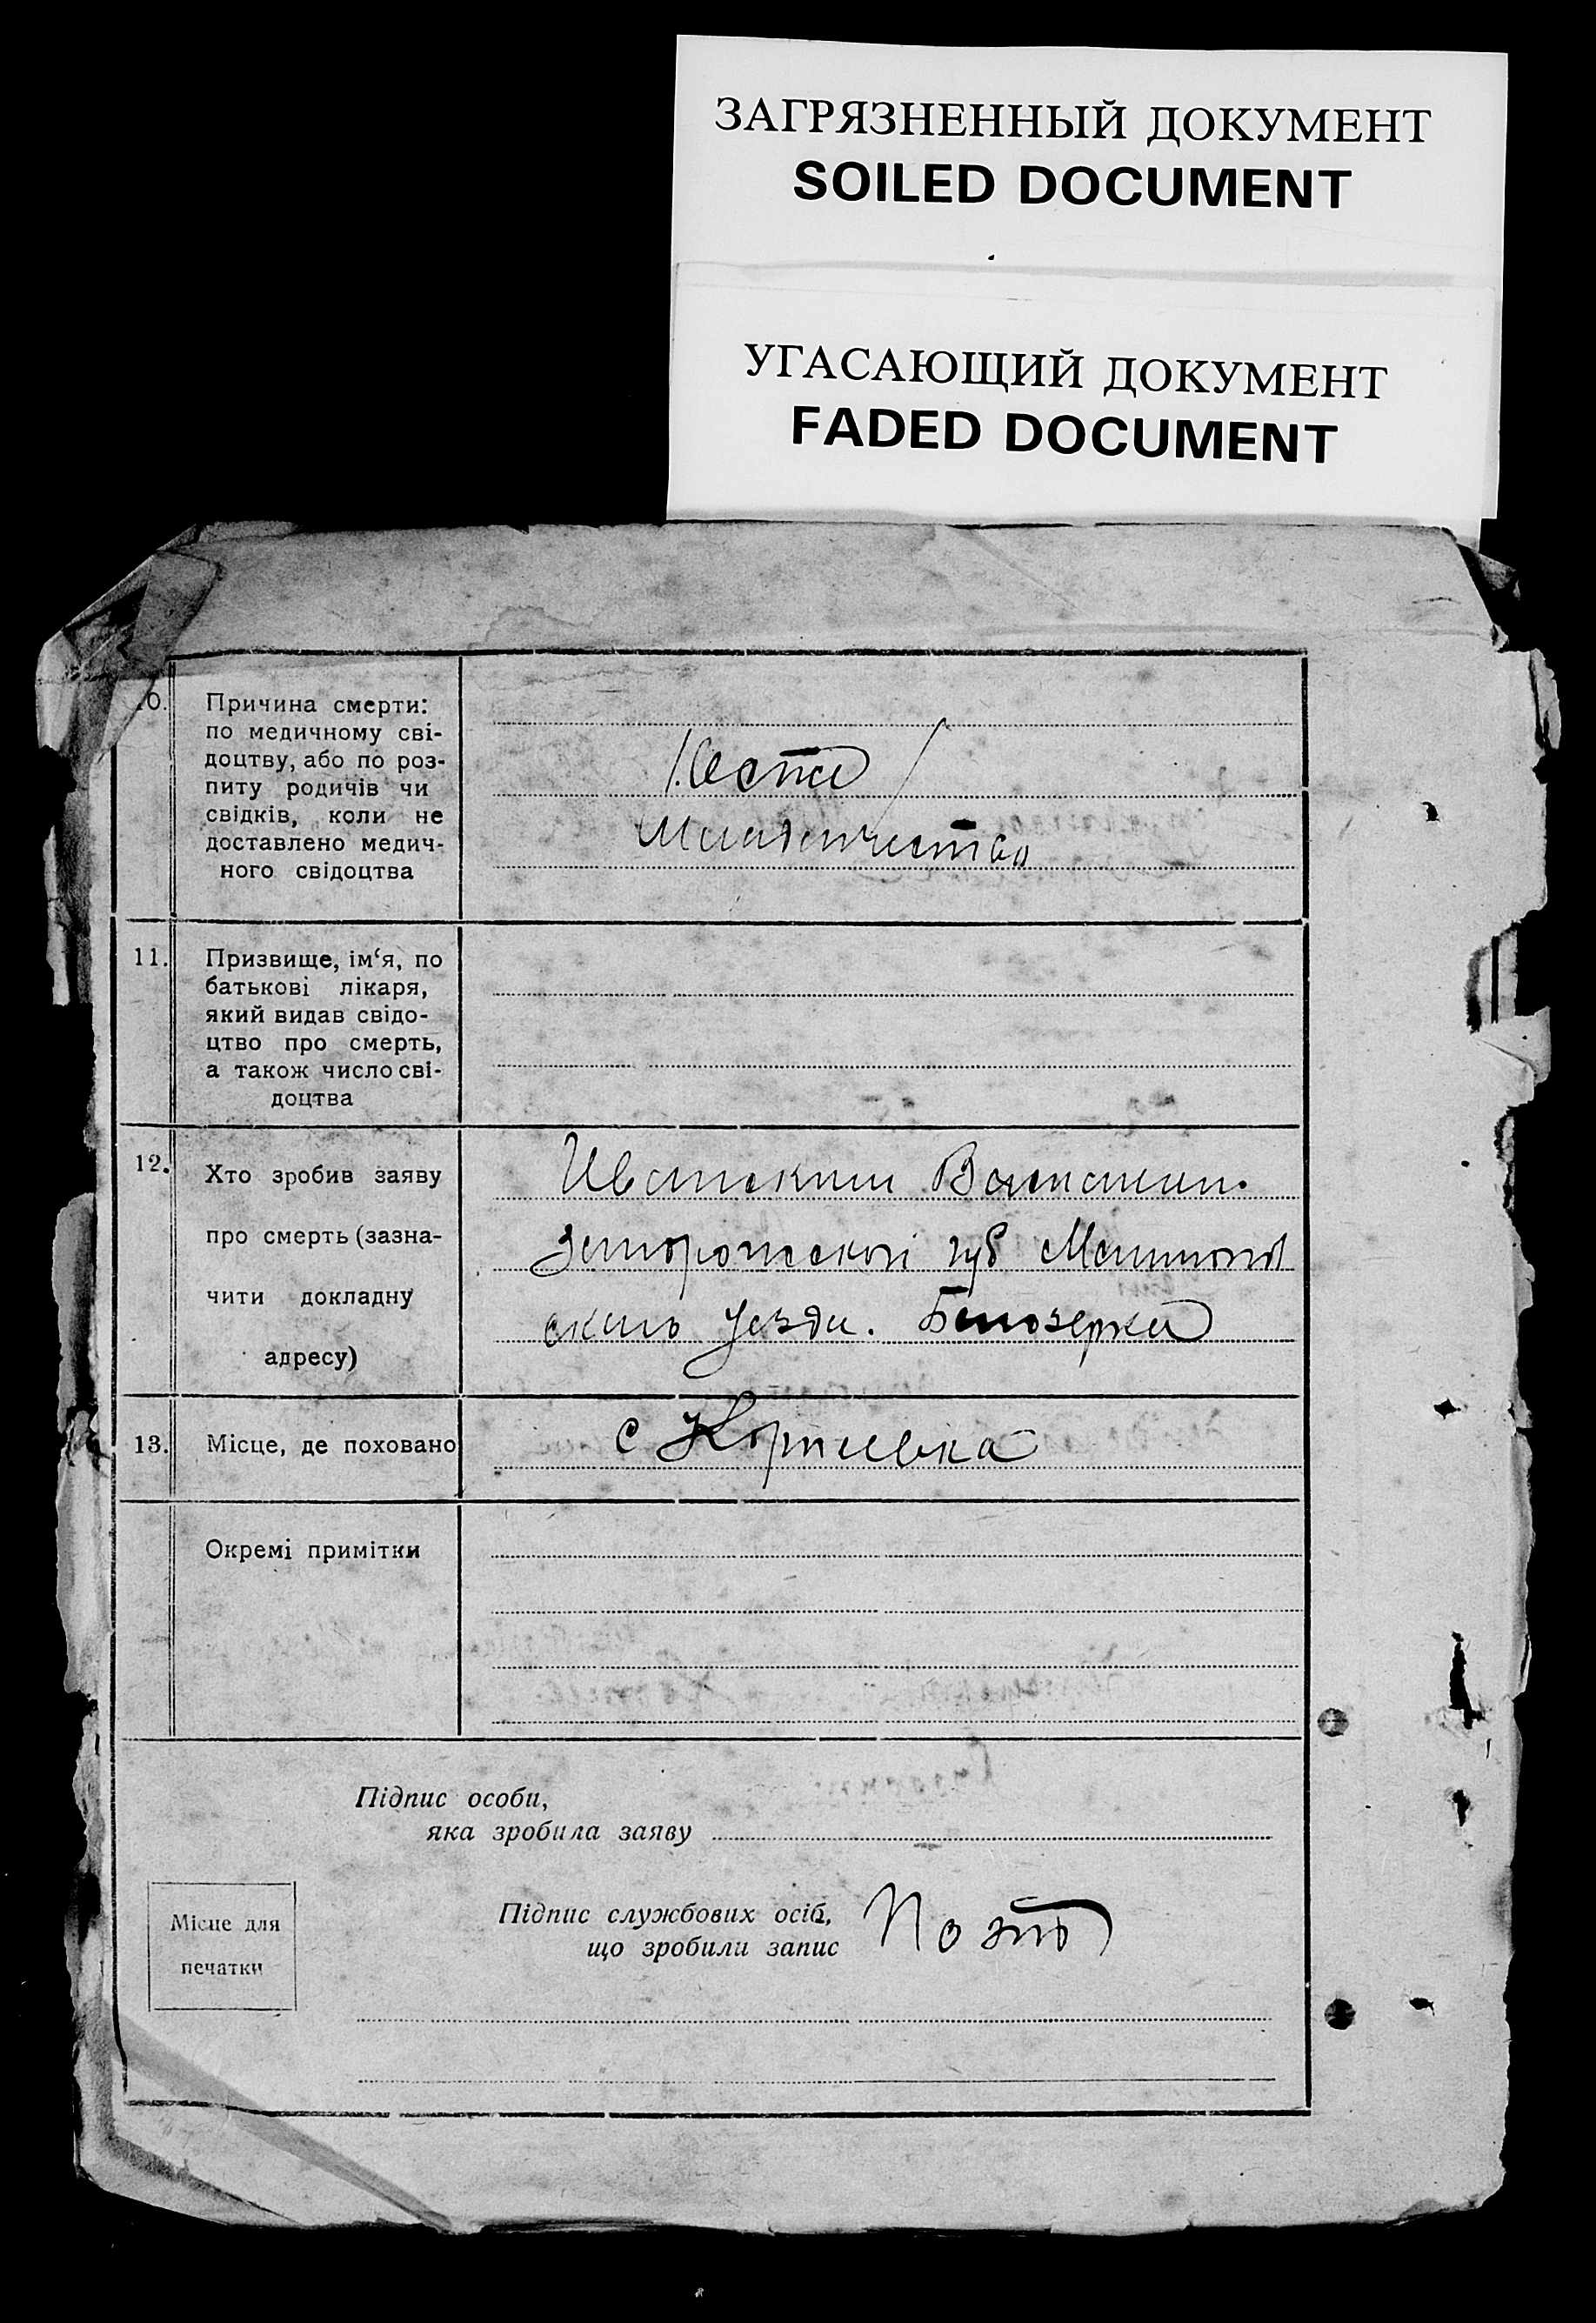 ЗАГРЯЗНЕННЫЙ ДОКУМЕНТ
SOILED DOCUMENT
УГАСАЮЩИЙ ДОКУМЕНТ
FADED DOCUMENT
10.
Причина смерти:
по медичному сві-
доцтву, або по роз-
питу родичів чи
свідків, коли не
доставлено медич-
ного свідоцтва
11.
Призвище, ім‘я, по
батькові лікаря,
який видав свідо-
цтво про смерть,
а також число сві-
доцтва
12.
Хто зробив заяву
про смерть (зазна-
чити докладну
адресу)
губ
уезда. Белозерка
13.
Місце, де поховано
с
Окремі примітки
Підпис особи,
яка зробила заяву
Місце для
печатки
Підпис службових осіб,
що зробили запис